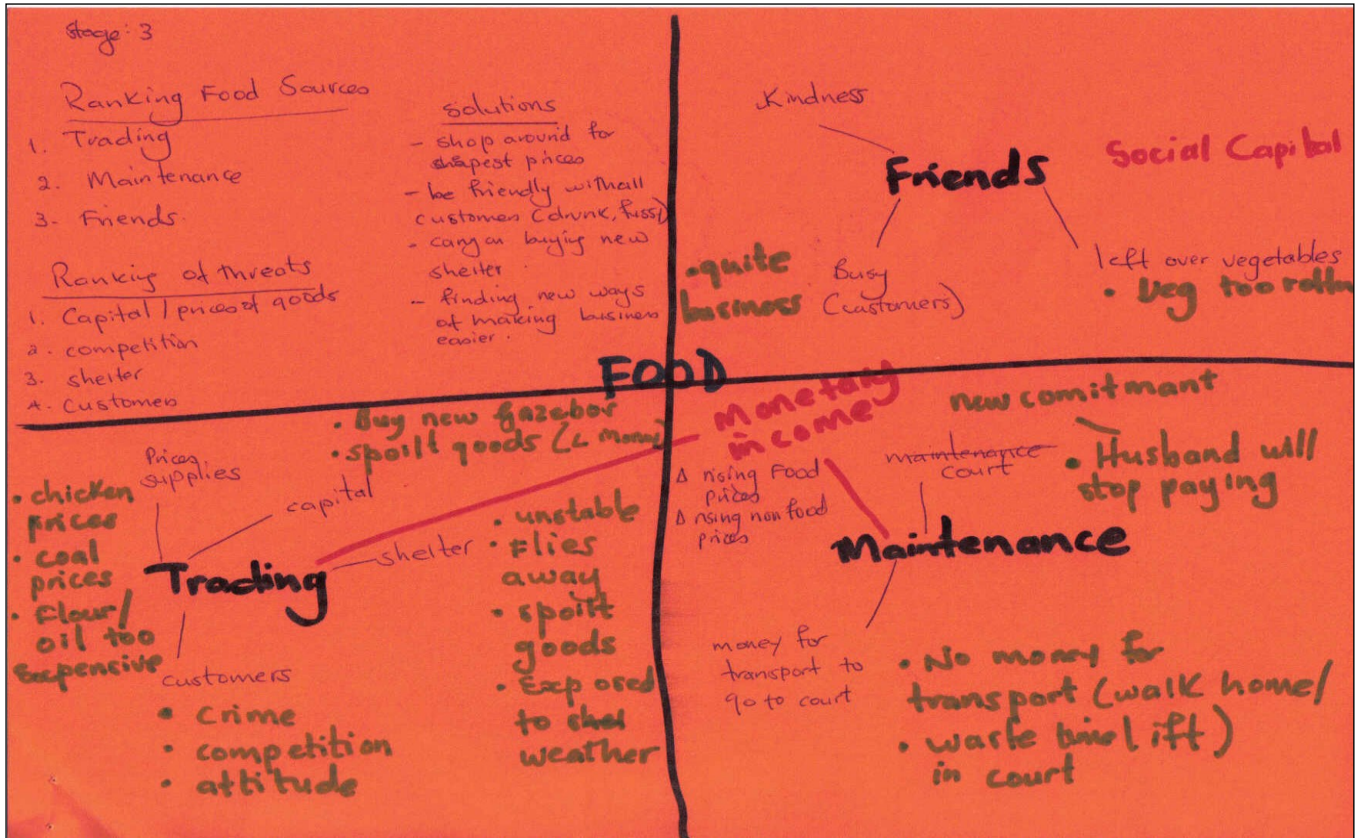 Stage: 3
Ranking Food Sources
1. Trading
2. Maintenance
3. Friends.
Ranking of threats
1. Capital / prices of goods
2. competition
3. shelter
4. Customers
Solutions
- shop around for
shapest prices
- be friendly with all
customer (drunk, fussy)
- carry on buying new
shelter.
- finding new ways
of making business
easier.
Kindness
Friends
Social Capital
• quite
business
Busy
(customers)
left over vegetables
• Veg too rotten
FOOD
• Buy new gazebor
• spoilt goods (L money)
Prices
supplies
capital
shelter
• chicken
prices
• coal
prices
• Flour/
oil too
expensive
Trading
customers
• crime
• competition
• attitude
• unstable
• Flies
away
• spoilt
goods
• Exposed
to shel
weather
Monetary
income
Δ rising Food
prices
Δ rising non food
prices
new comitmant
maintenance
court
• Husband will
stop paying
Maintenance
money for
transport to
go to court
• No money for
transport (walk home/
lift)
• waste time
in court